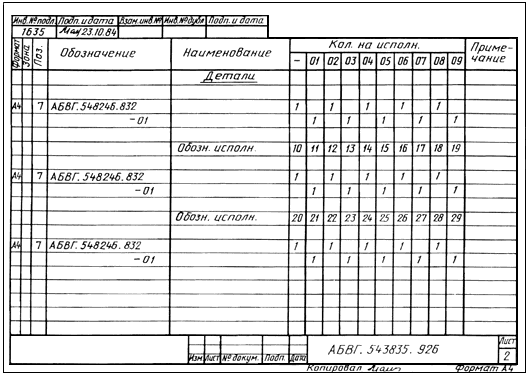 Инв.№подл. Подп.и дата Взам.инв.№ Инв.№дубл. Подп. и дата
1635 23.10.84
Формат Зона Поз. Обозначение Наименование Кол. на исполн. Приме-
чание
– 01 02 03 04 05 06 07 08 09
Детали
А4 7 АБВГ.548246.832 1 1 1 1 1
–01 1 1 1 1 1
Обозн. исполн. 10 11 12 13 14 15 16 17 18 19
А4 7 АБВГ.548246.832 1 1 1 1 1
–01 1 1 1 1 1
Обозн. исполн. 20 21 22 23 24 25 26 27 28 29
А4 7 АБВГ.548246.832 1 1 1 1 1
–01 1 1 1 1 1
АБВГ.543835.926 Лист
2
Изм. Лист № докум. Подп. Дата
Копировал Формат А4